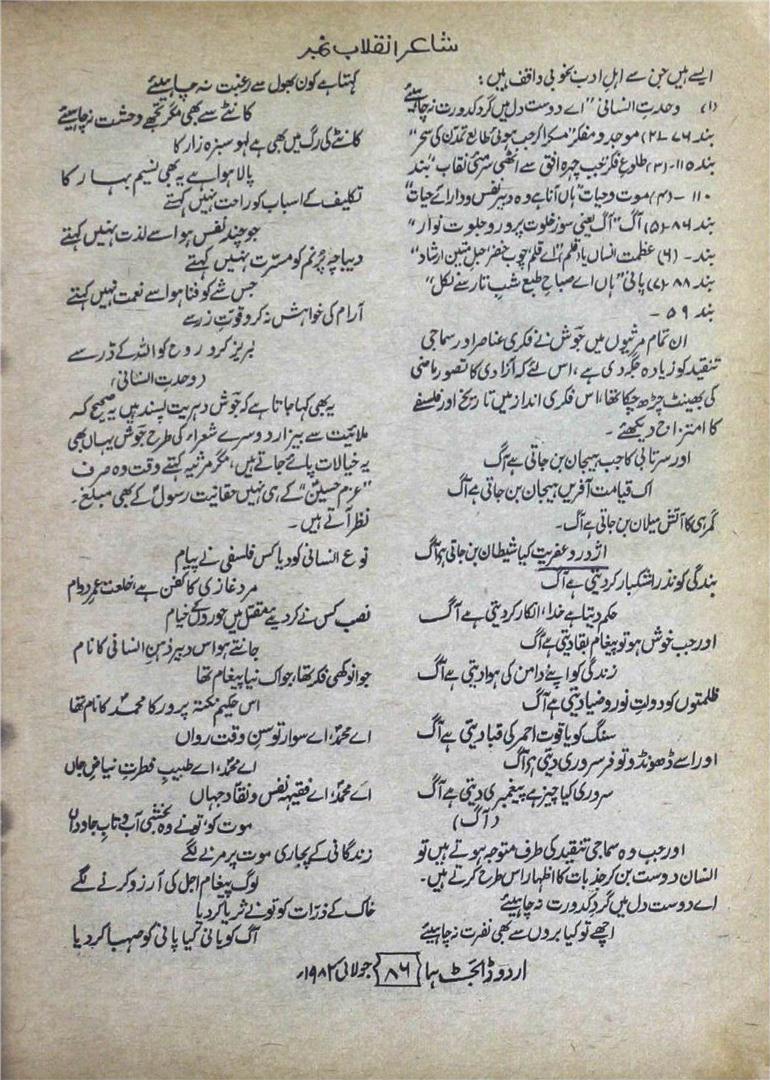 شاعر انقلاب نمبر
ایسے ہیں جن سے اہلِ ادب بخوبی واقف ہیں:
(۱) وحدتِ انسانی "اے دوست دل میں گردِ کدورت نہ چاہیئے
بند ۷۶ -(۲) موجد و مفکر "مسکرا کر جب ہوئی طالع تمدن کی سحر"
بند ۱۱۵-(۳) طلوعِ فکر "جب چہرہ افق سے اٹھی سرمئی نقاب" بند
۱۱۰ - (۴) موت و حیات "ہاں آنا ہے وہ دبیر نفس و دارائے حیات"
بند ۸۶-(۵) آگ "آگ یعنی سوز خلوت پرور و جلوت نواز"
بند - (۶) عظمت انساں یا قلم "اے قلم چوب خضر حبل متین ارشاد"
بند ۸۸-(۷) پانی "ہاں اے صباحِ طبع شبِ تار سے نکل"
بند ۵۹ -
ان تمام مرثیوں میں جوش نے فکری عناصر اور سماجی
تنقید کو زیادہ جگہ دی ہے، اس لئے کہ آزادی کا تصور ماضی
کی بھینٹ چڑھ چکا تھا، اس فکری انداز میں تاریخ اور فلسفے
کا امتزاج دیکھئے -
اور سرتابی کا جب ہیجان بن جاتی ہے آگ
اک قیامت آفریں ہیجان بن جاتی ہے آگ
گمرہی کا آتشِ میلان بن جاتی ہے آگ -
اژدر و عفریت کیا شیطان بن جاتی ہے آگ
بندگی کو نذرِ اشکبار کردیتی ہے آگ
حکم دیتا ہے خدا، انکار کردیتی ہے آگ
اور جب خوش ہو تو پیغام بقا دیتی ہے آگ
زندگی کو اپنے دامن کی ہوا دیتی ہے آگ
ظلمتوں کو دولتِ نور و ضیا دیتی ہے آگ
سنگ کو یاقوتِ احمر کی قبا دیتی ہے آگ
اور اسے ڈھونڈو تو فر سروری دیتی ہے آگ
سروری کیا چیز ہے پیغمبری دیتی ہے آگ
(آگ)
اور جب وہ سماجی تنقید کی طرف متوجہ ہوتے ہیں تو
انسان دوست بن کر جذبات کا اظہار اس طرح کرتے ہیں.
اے دوست دل میں گردِ کدورت نہ چاہیئے
اچھے تو کیا بروں سے بھی نفرت نہ چاہیئے
کہتا ہے کون پھول سے رغبت نہ چاہیئے
کانٹے سے بھی مگر تجھے وحشت نہ چاہیئے
کانٹے کی رگ میں بھی ہے لہو سبزہ زار کا
پالا ہوا ہے یہ بھی نسیم بہار کا
تکلیف کے اسباب کو راحت نہیں کہتے
جو چند نفس ہو اسے لذت نہیں کہتے
دیباچہ پرنم کو مسرت نہیں کہتے
جس شے کو فنا ہو اسے نعمت نہیں کہتے
آرام کی خواہش نہ کرو قوتِ زر سے
لبریز کرو روح کو اللہ کے ڈر سے
(وحدتِ انسانی)
یہ بھی کہا جاتا ہے کہ جوش دہریت پسند ہیں یہ صحیح کہ
ملائیت سے بیزار دوسرے شعراء کی طرح جوش یہاں بھی
یہ خیالات پائے جاتے ہیں، مگر مرثیہ کہتے وقت وہ صرف
"عزم حسینؑ" کے ہی نہیں حقانیت رسولؐ کے بھی مبلغ
نظر آتے ہیں -
نوع انسانی کو دیا کس فلسفی نے پیام
مرد غازی کا کفن ہے، خلعت عمر دوام
نصب کس نے کردیے مقتل میں حوروں کے خیام
جانتے ہو اس دبیر ذہنِ انسانی کا نام
جو انوکھی فکر تھا، جو اک نیا پیغام تھا
اس حکیم نکتہ پرور کا محمدؐ کا نام تھا
اے محمدؐ، اے سوار توسنِ وقت رواں
اے محمدؐ، اے طبیب فطرتِ نباضِ جاں
اے محمدؐ، اے فقیہہ نفس و نقاد جہاں
موت کو تونے وہ بخشی آب و تابِ جاوداں
زندگانی کے پجاری موت پر مرنے لگے
لوگ پیغام اجل کی آرزو کرنے لگے
خاک کے ذرّات کو تونے ثریا کردیا
آگ کو پانی کیا پانی کو صہبا کردیا
اردو ڈائجسٹ ہما ۸۶ جولائی ۱۹۸۲ء